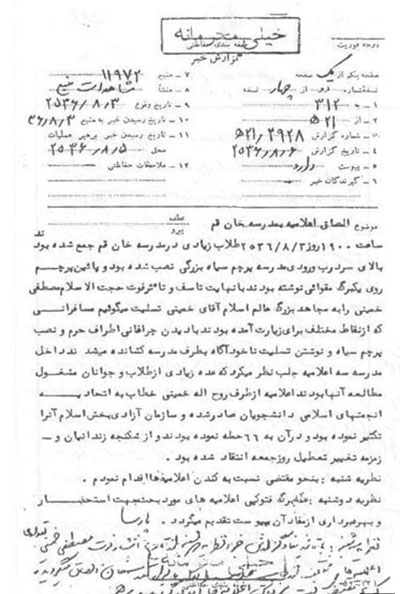 خیلی محرمانه
طبقه بندی حفاظتی
گزارش خبر
درجه فوریت
صفحه یکم از یک صفحه
نسخه شماره از چهار نسخه
۱ - به ۳۱۲
۲ - از ۵۲۱
۳ - شماره گزارش ۵۲۱/۲۹۲۸
۴ - تاریخ گزارش ۲۵۳۶/۸/۶
۵ - پیوست دارد
۶ - گیرندگان خبر
۷ - منبع ۱۱۹۷۲
۸ - منشأ مشاهدات منبع
۹ - تاریخ وقوع ۲۵۳۶/۸/۳
۱۰ - تاریخ رسیدن خبر به منبع ۳۶/۸/۳
۱۱ - تاریخ رسیدن خبر برهبر عملیات
محل ۲۵۳۶/۸/۵
۱۲ - ملاحظات حفاظتی
موضوع الصاق اعلامیه بمدرسه خان قم
عطف
پیرو
ساعت ۱۹۰۰ روز ۲۵۳۶/۸/۳ طلاب زیادی درمدرسه خان قم جمع شده بودند
بالای سردرب ورودی مدرسه پرچم سیاه بزرگی نصب شده بود و پائین پرچم
روی یکبرگ مقوائی نوشته بودند با نهایت تاسف و تاثر فوت حجت الاسلام مصطفی
خمینی را به مجاهد بزرگ عالم اسلام آقای خمینی تسلیت میگوئیم مسافرانی
که از نقاط مختلف برای زیارت آمده بودند با دیدن چراغانی اطراف حرم و نصب
پرچم سیاه و نوشتن تسلیت ناخودآگاه بطرف مدرسه کشانده میشدند داخل
مدرسه سه اعلامیه جلب نظر میکرد که عده زیادی از طلاب و جوانان مشغول
مطالعه آنها بودند اعلامیه از طرف روح اله خمینی خطاب به اتحادیه
انجمنهای اسلامی دانشجویان صادر شده و سازمان آزادی بخش اسلام آنرا
تکثیر نموده بود و در آن به ۶۶ حمله نموده بودند و از شکنجه زندانیان و
زمزمه تغییر تعطیل روز جمعه انتقاد شده بود.
نظریه شنبه : بنحو مقتضی نسبت به کندن اعلامیه‌ها اقدام نمودم.
نظریه دوشنبه : هکبرگ فتوکپی اعلامیه های مورد بحث جهت استحضار
و بهره برداری از مفاد آن پیوست تقدیم میگردد. پارسا